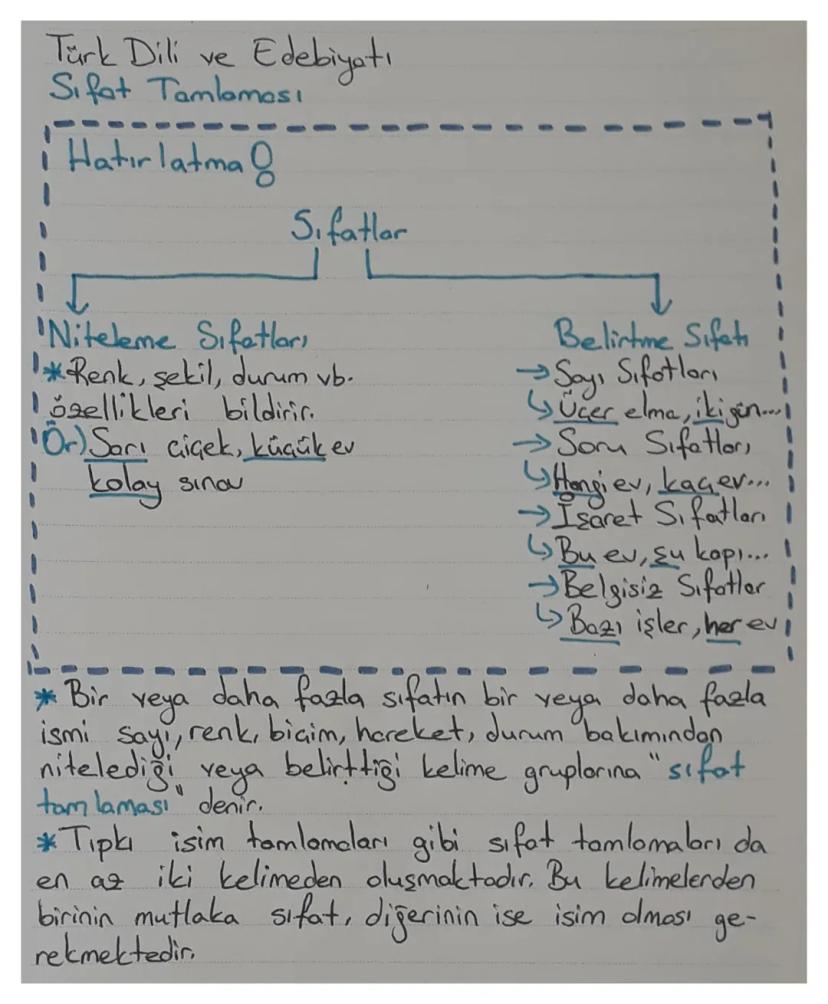 Türk Dili ve Edebiyatı
Sıfat Tamlaması
Hatırlatma!
Sıfatlar
Niteleme Sıfatları
* Renk, şekil, durum vb.
özellikleri bildirir.
Ör) Sarı çiçek, küçük ev
kolay sınav
Belirtme Sıfatı
→ Sayı Sıfatları
↳ Üçer elma, iki gün...
→ Soru Sıfatları
↳ Hangi ev, kaç ev...
→ İşaret Sıfatları
↳ Bu ev, şu kapı...
→ Belgisiz Sıfatlar
↳ Bazı işler, her ev
* Bir veya daha fazla sıfatın bir veya daha fazla
ismi sayı, renk, biçim, hareket, durum bakımından
nitelediği veya belirttiği kelime gruplarına "sıfat
tamlaması" denir.
* Tıpkı isim tamlamaları gibi sıfat tamlamaları da
en az iki kelimeden oluşmaktadır. Bu kelimelerden
birinin mutlaka sıfat, diğerinin ise isim olması ge-
rekmektedir.